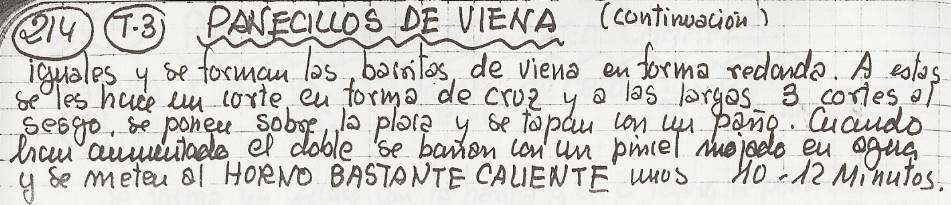 214 T.3 PANECILLOS DE VIENA (continuación)
iguales y se forman las barritas de viena en forma redonda. A estas
se les hace un corte en forma de cruz y a las largas 3 cortes al
sesgo, se ponen sobre la placa y se tapan con un paño. Cuando
han aumentado el doble se bañan con un pincel mojado en agua
y se meten al HORNO BASTANTE CALIENTE unos 10-12 Minutos.